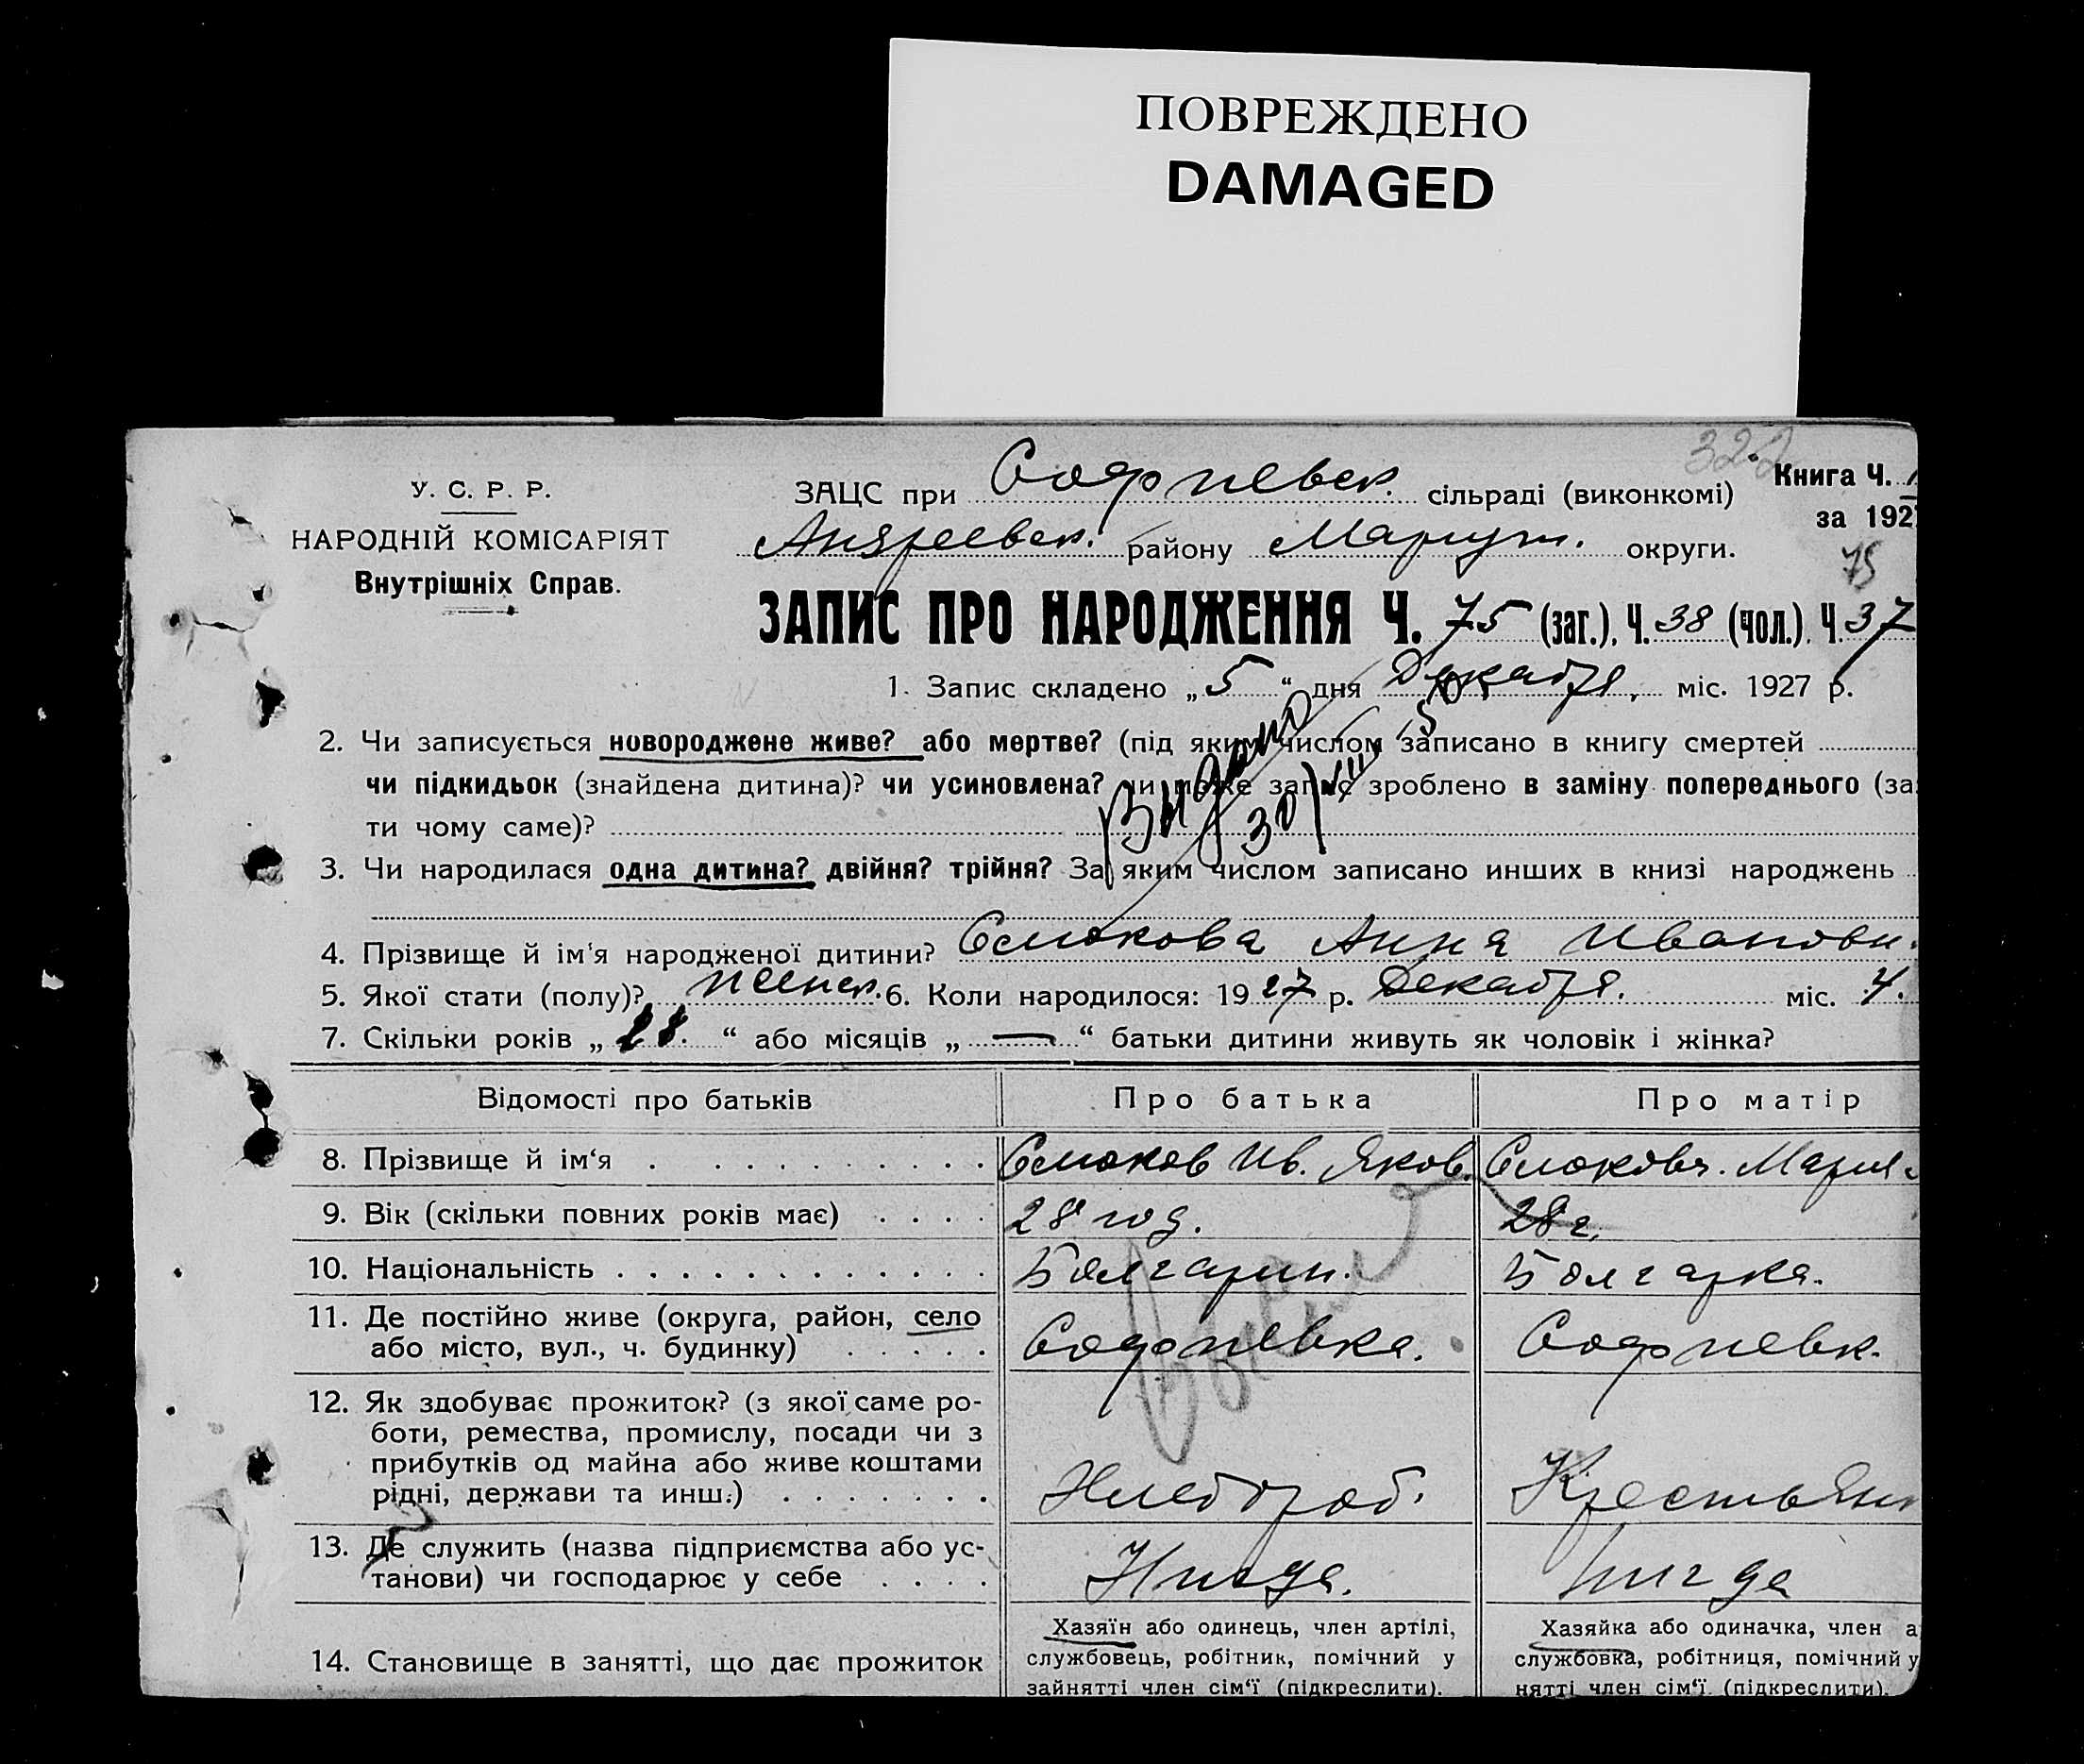 ПОВРЕЖДЕНО
DAMAGED
322
У. С. Р. Р.
НАРОДНІЙ КОМІСАРІЯТ
Внутрішніх Справ.
ЗАЦС при Софиевск. сільраді (виконкомі)
Книга Ч.
за 1927
Андреевск. району Мариуп. округи.
75
ЗАПИС ПРО НАРОДЖЕННЯ Ч. 75 (заг.), Ч. 38 (чол.). Ч. 37
1. Запис складено „5“ дня Декабря, міс. 1927 р.
2. Чи записується новороджене живе? або мертве? (під яким числом записано в книгу смертей
чи підкидьок (знайдена дитина)? чи усиновлена? чи може запис зроблено в заміну попереднього (за
ти чому саме)?
Видано
30/VIII 50
3. Чи народилася одна дитина? двійня? трійня? За яким числом записано инших в книзі народжень
4. Прізвище й ім'я народженої дитини? Слюкова Анна Ивановн.
5. Якої стати (полу)? женск. 6. Коли народилося: 1927 р. Декабря. міс. 4.
7. Скільки років „ “ або місяців „—“ батьки дитини живуть як чоловік і жінка?
Відомості про батьків Про батька Про матір
8. Прізвище й ім‘я . . . . . . . . . . Слюков Ив. Яков. Слюкова. Мария
9. Вік (скільки повних років має) . . . . 28 год. 28 г.
10. Національність . . . . . . . . . . . . Болгарин. Болгарка.
11. Де постійно живе (округа, район, село
або місто, вул., ч. будинку) . . . . . Софиевка. Софиевк.
12. Як здобуває прожиток? (з якої саме ро-
боти, ремества, промислу, посади чи з
прибутків од майна або живе коштами
рідні, держави та инш.) . . . . . . . Хлебороб. Крестьян
13. Де служить (назва підприємства або ус-
танови) чи господарює у себе . . . . Нигде. Нигде
14. Становище в занятті, що дає прожиток
Хазяїн або одинець, член артілі,
службовець, робітник, помічний у
зайнятті член сім‘ї (підкреслити).
Хазяйка або одиначка, член а
службовка, робітниця, помічний у
нятті член сім‘ї. (підкреслити).